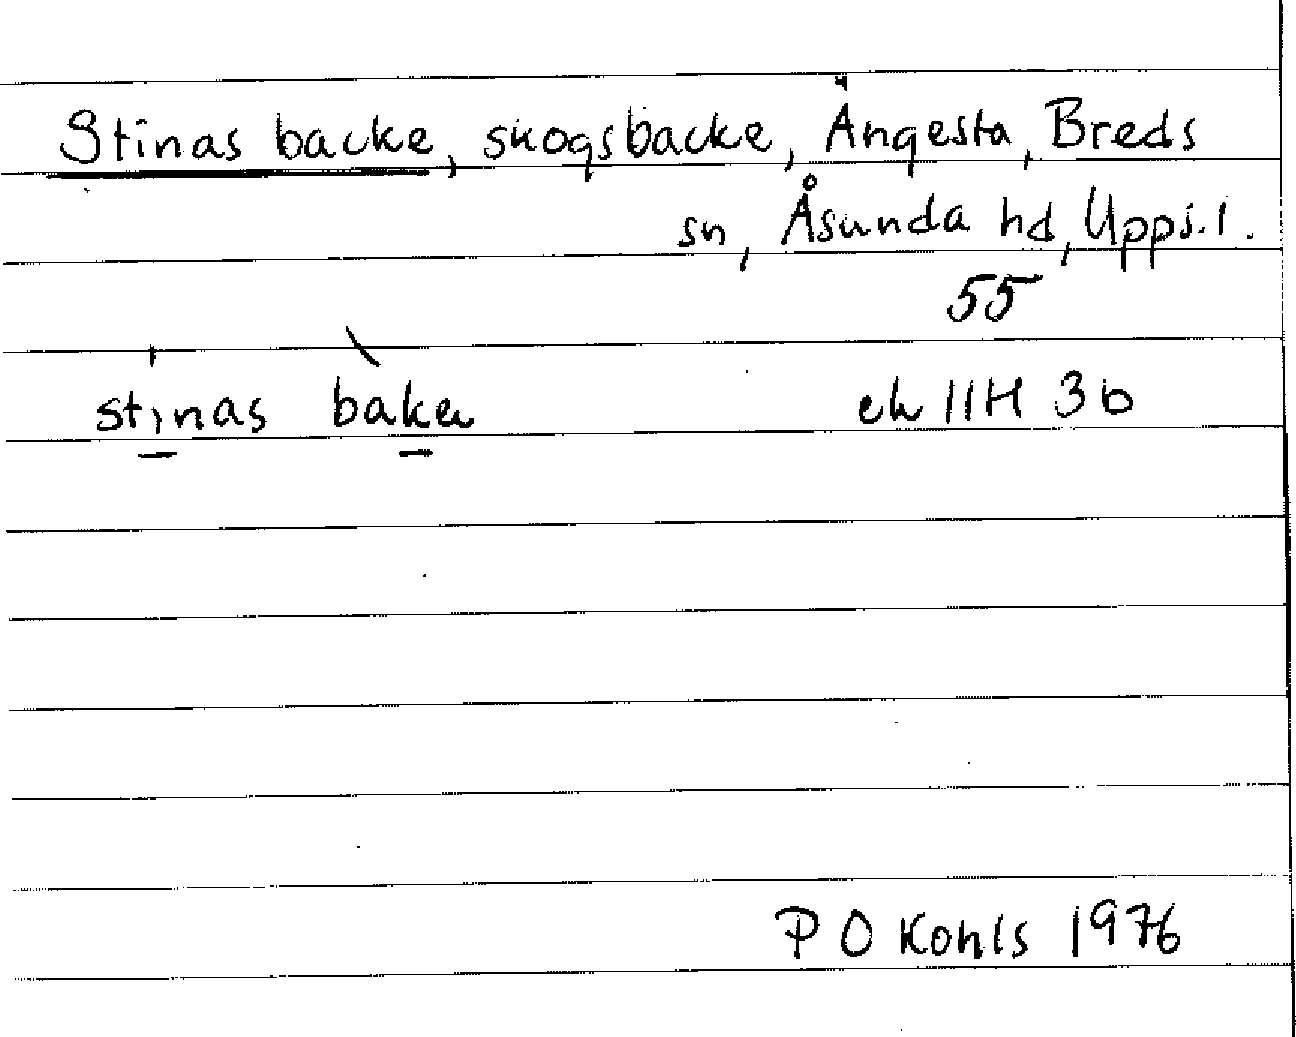 Stinas backe, skogsbacke, Ängesta, Breds
sn, Åsunda hd, Upps. l.
55
stinas bakɐ ek 11H 3b
P O Kohls 1976